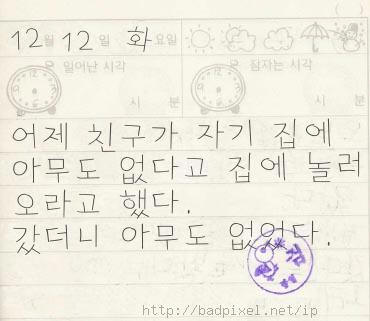 12월 12일 화요일
일어난 시각 잠자는 시각
시 분 시 분
어제 친구가 자기 집에
아무도 없다고 집에 놀러
오라고 했다.
갔더니 아무도 없었다.
http://badpixel.net/ip